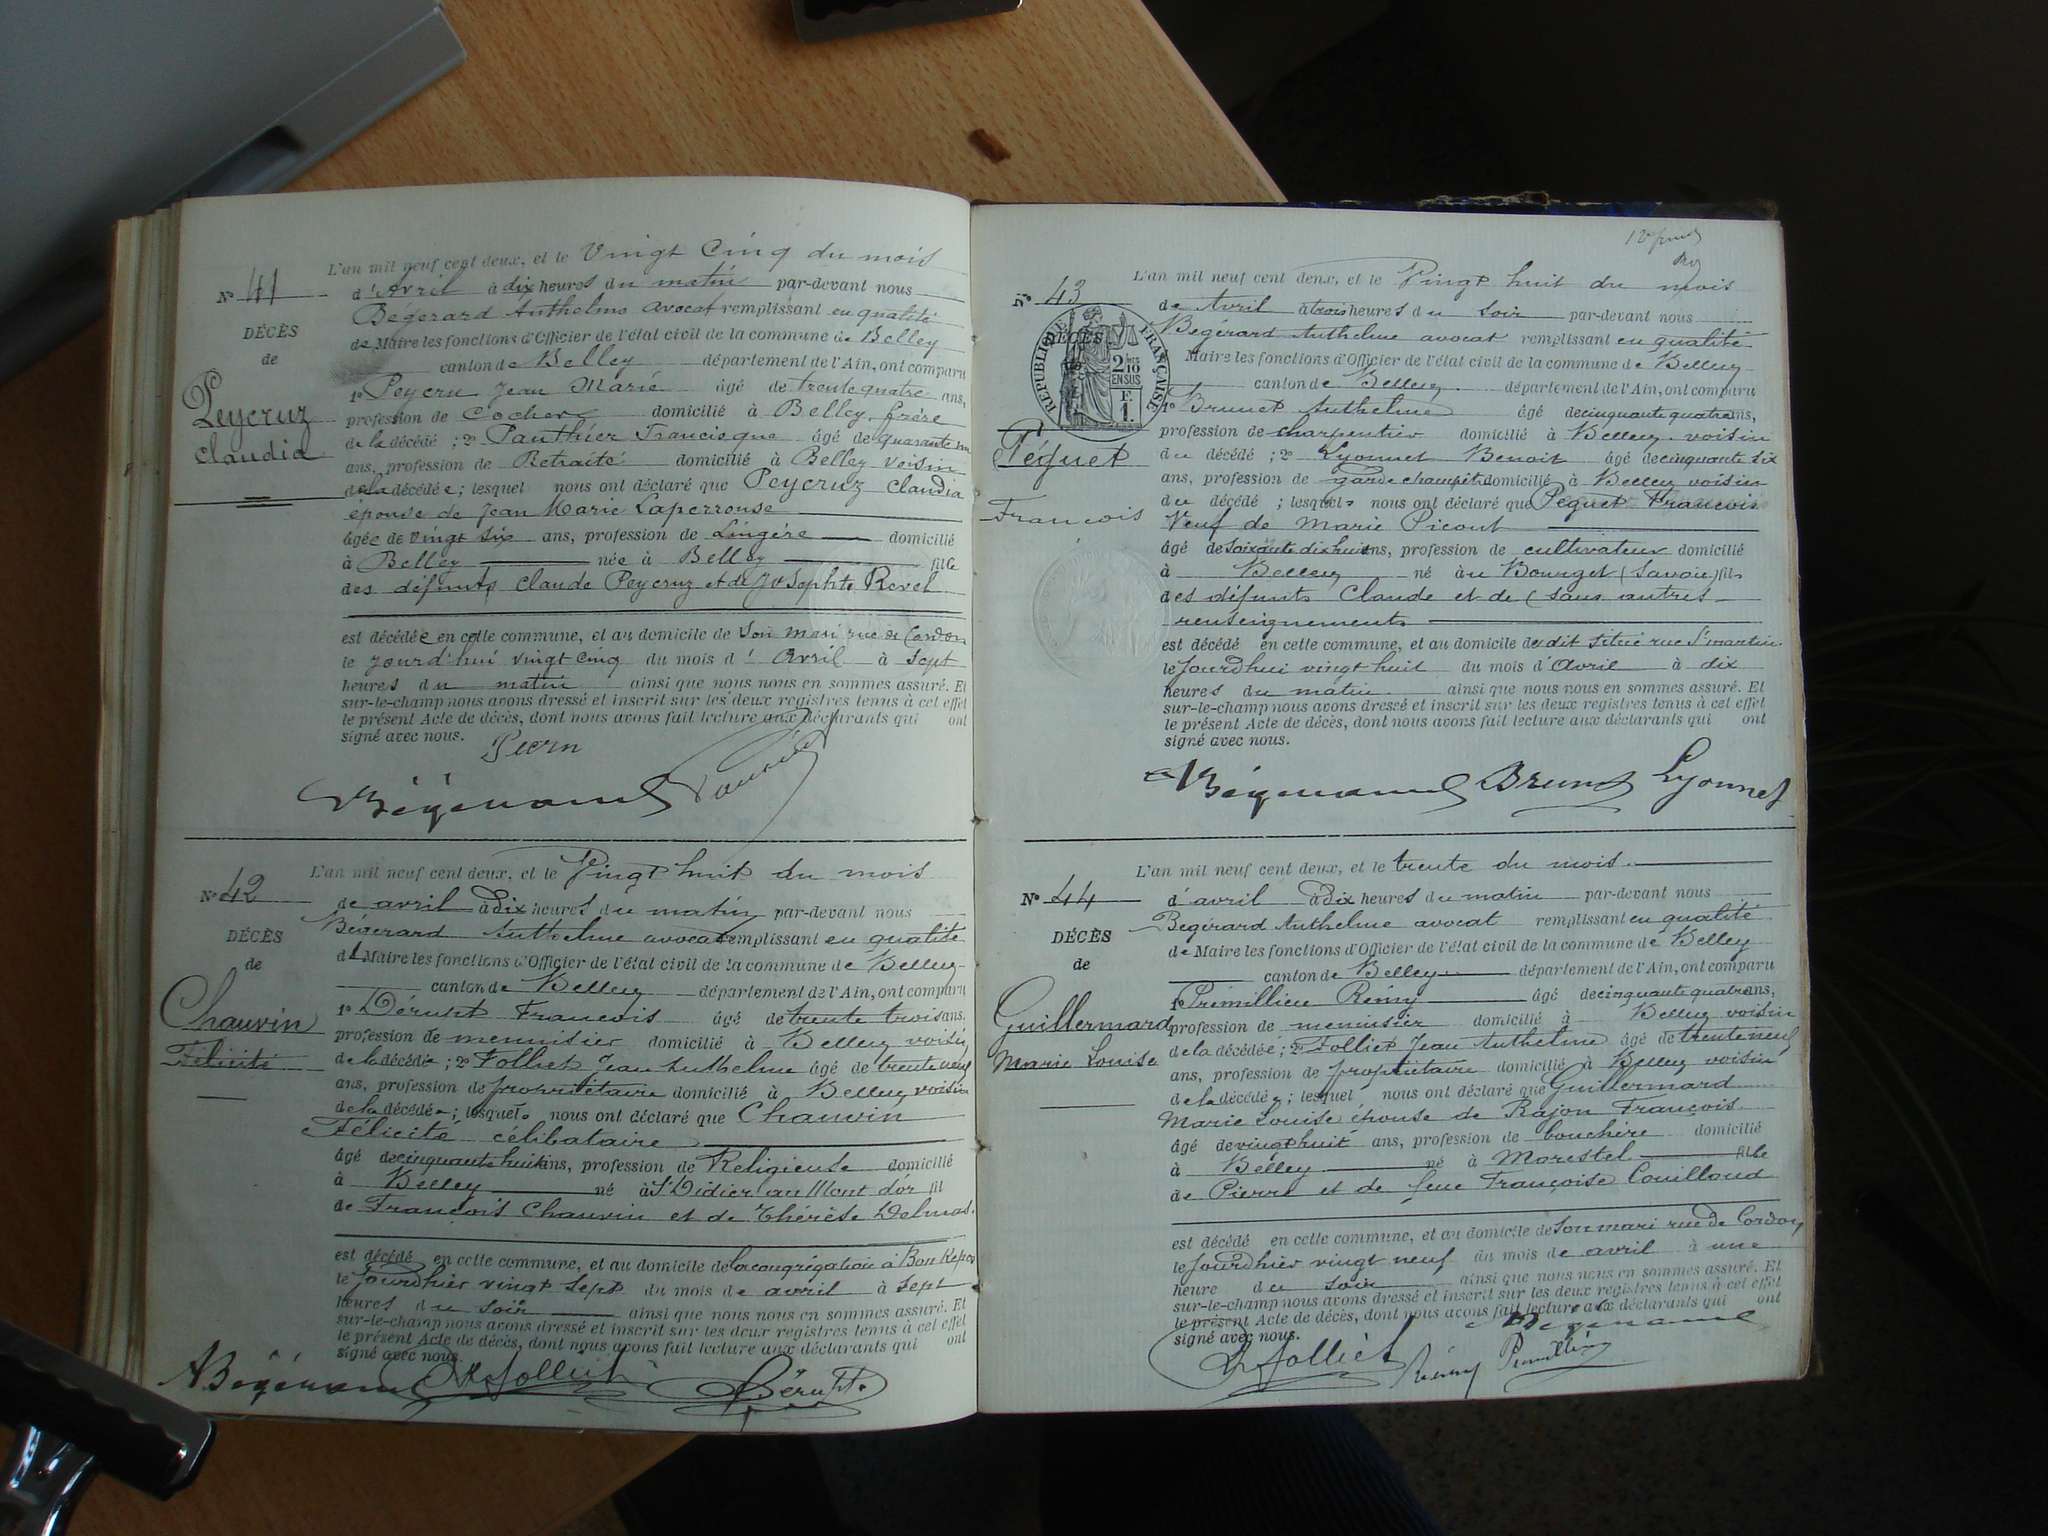 L'an mil neuf cent deux, et le Vingt Cinq du mois
N° 41
d'Avril à dix heures du matin par-devant nous
Bégerard Anthelme avocat remplissant en qualité
DÉCÈS
de Maire les fonctions d'Officier de l'état civil de la commune de Belley
de
canton de Belley département de l'Ain, ont comparu
1° Peycru Jean Marie âgé de trente quatre ans,
Peycruz
profession de Cocher domicilié à Belley, frère
claudia
de la décédé ; 2° Panthier Francisque âgé de quarante un
ans, profession de Retraité domicilié à Belley voisin
de la décédée ; lesquel nous ont déclaré que Peycruz claudia
épouse de Jean Marie Laperrouse
âgée de vingt six ans, profession de Lingère domicilié
à Belley née à Belley fille
des défunts Claude Peycruz et de Josephte Revel
est décédée en cette commune, et au domicile de son mari rue de Cordon
le jourd'hui vingt cinq du mois d' Avril à sept
heures du matin ainsi que nous nous en sommes assuré. Et
sur-le-champ nous avons dressé et inscrit sur les deux registres tenus à cet effet
le présent Acte de décès, dont nous avons fait lecture aux déclarants qui ont
signé avec nous.
L'an mil neuf cent deux, et le Vingt huit du mois
N° 42
de avril à Dix heures du matin par-devant nous
Bégerard Anthelme avocat remplissant en qualité
DÉCÈS
d Maire les fonctions d'Officier de l'état civil de la commune de Belley
de
canton de Belley département de l'Ain, ont comparu
Chauvin
1° Dérupt François âgé de trente trois ans,
profession de menuisier domicilié à Belley voisin
Félicité
de la décédée ; 2° Folliet Jean Anthelme âgé de trente neuf
ans, profession de propriétaire domicilié à Belley voisin
de la décédée ; lesquels nous ont déclaré que Chauvin
Félicité célibataire
âgé de cinquante huit ans, profession de Religieuse domicilié
à Belley né à St Didier au Mont d'or fil
de François Chauvin et de Thérèse Delmas.
est décédé en cette commune, et au domicile de la congrégation à Bon Repos
le Jourdhier vingt sept du mois de avril à sept
heures du soir ainsi que nous nous en sommes assuré. Et
sur-le-champ nous avons dressé et inscrit sur les deux registres tenus à cet effet
le présent Acte de décès, dont nous avons fait lecture aux déclarants qui ont
signé avec nous.
A Bégerard JA Folliet Dérupt
L'an mil neuf cent deux, et le Vingt huit du mois
N° 43
de Avril à trois heures du soir par-devant nous
Bégérard Anthelme avocat remplissant en qualité
DÉCÈS
RÉPUBLIQUE FRANÇAISE
2 10
EN SUS
F.
1.
Maire les fonctions d'Officier de l'état civil de la commune de Belley
canton de Belley département de l'Ain, ont comparu
1° Brunet Anthelme âgé de cinquante quatre ans,
profession de charpentier domicilié à Belley voisin
Péquet
du décédé ; 2° Lyonnet Benoit âgé de cinquante six
ans, profession de garde champêtre domicilié à Belley voisin
du décédé ; lesquels nous ont déclaré que Péquet François
François
Veuf de Marie Picout
âgé de soixante dix huit ans, profession de cultivateur domicilié
à Belley né au Bourget (Savoie) fils
des défunts Claude et de (sans autres
renseignements
est décédé en cette commune, et au domicile du dit situé rue St martin
le Jourdhui vingt huit du mois d'avril à dix
heures du matin ainsi que nous nous en sommes assuré. Et
sur-le-champ nous avons dressé et inscrit sur les deux registres tenus à cet effet
le présent Acte de décès, dont nous avons fait lecture aux déclarants qui ont
signé avec nous.
Bégerard Brunet Lyonnet
L'an mil neuf cent deux, et le trente du mois
N° 44
d'avril à Dix heures du matin par-devant nous
Bégérard Anthelme avocat remplissant en qualité
DÉCÈS
de Maire les fonctions d'Officier de l'état civil de la commune de Belley
de
canton de Belley département de l'Ain, ont comparu
1° Primillieu Rémy âgé de cinquante quatre ans,
Guillermard
profession de menuisier domicilié à Belley voisin
de la décédée ; 2° Folliet Jean Anthelme âgé de trente neuf
Marie Louise
ans, profession de propriétaire domicilié à Belley voisin
de la décédée ; lesquel nous ont déclaré que Guillermard
Marie Louise épouse de Rajon François
âgé de vingt huit ans, profession de bouchère domicilié
à Belley né à Morestel fille
de Pierre et de feue Françoise Couilloud
est décédé en cette commune, et au domicile de son mari rue de Cordon
le Jourdhier vingt neuf du mois de avril à une
heure du soir ainsi que nous nous en sommes assuré. Et
sur-le-champ nous avons dressé et inscrit sur les deux registres tenus à cet effet
le présent Acte de décès, dont nous avons fait lecture aux déclarants qui ont
signé avec nous.
Bégerard
JA Folliet Rémy Primillieu